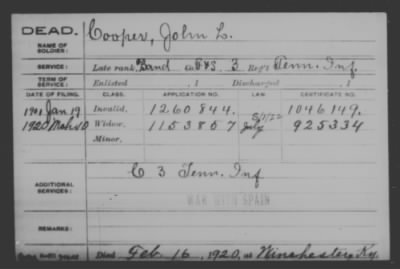 DEAD.
NAME OF SOLDIER:
Cooper, John L.
SERVICE:
Late rank, Band Co. F&S 3 Reg't Tenn. Inf.
TERM OF SERVICE:
Enlisted , 1 Discharged , 1
DATE OF FILING. CLASS. APPLICATION NO. LAW. CERTIFICATE NO.
1901 Jan 19 Invalid. 1260844. 1046149.
1920 Widow. 1153857 July 925334
Minor.
ADDITIONAL SERVICES:
C 3 Tenn. Inf
WAR WITH SPAIN
REMARKS:
Died Feb 16, 1920, at Winchester Ky.